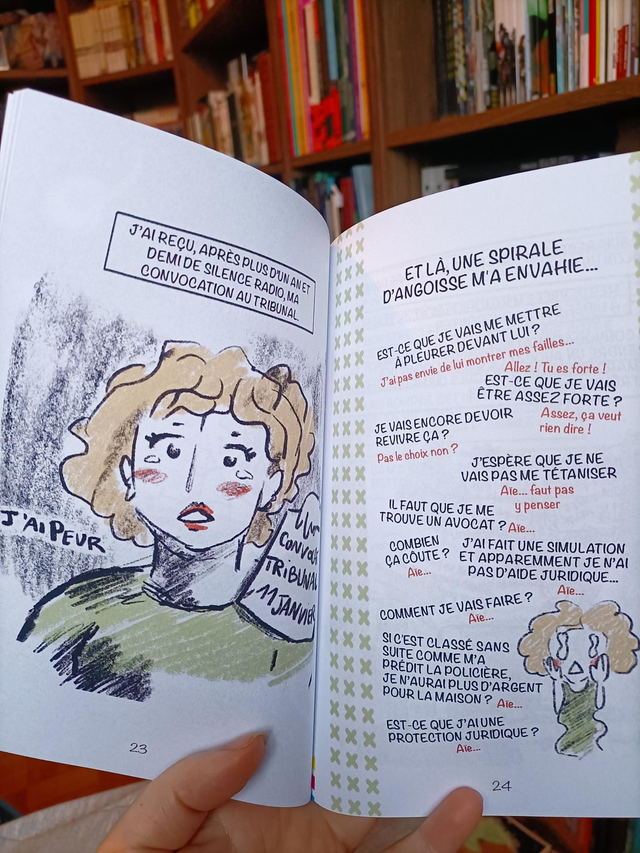 J'AI REÇU, APRÈS PLUS D'UN AN ET
DEMI DE SILENCE RADIO, MA
CONVOCATION AU TRIBUNAL.
J'AI PEUR
TRIBUNAL
11 JANVIER
23
ET LÀ, UNE SPIRALE
D'ANGOISSE M'A ENVAHIE...
EST-CE QUE JE VAIS ME METTRE
À PLEURER DEVANT LUI ?
J'ai pas envie de lui montrer mes failles...
Allez ! Tu es forte !
EST-CE QUE JE VAIS
ÊTRE ASSEZ FORTE ?
Assez, ça veut
rien dire !
JE VAIS ENCORE DEVOIR
REVIVRE ÇA ?
Pas le choix non ?
J'ESPÈRE QUE JE NE
VAIS PAS ME TÉTANISER
Aïe... faut pas
y penser
IL FAUT QUE JE ME
TROUVE UN AVOCAT ? Aïe...
COMBIEN
ÇA COÛTE ?
Aïe...
J'AI FAIT UNE SIMULATION
ET APPAREMMENT JE N'AI
PAS D'AIDE JURIDIQUE...
Aïe...
COMMENT JE VAIS FAIRE ?
Aïe...
SI C'EST CLASSÉ SANS
SUITE COMME M'A
PRÉDIT LA POLICIÈRE,
JE N'AURAI PLUS D'ARGENT
POUR LA MAISON ? Aïe...
EST-CE QUE J'AI UNE
PROTECTION JURIDIQUE ?
Aïe...
24